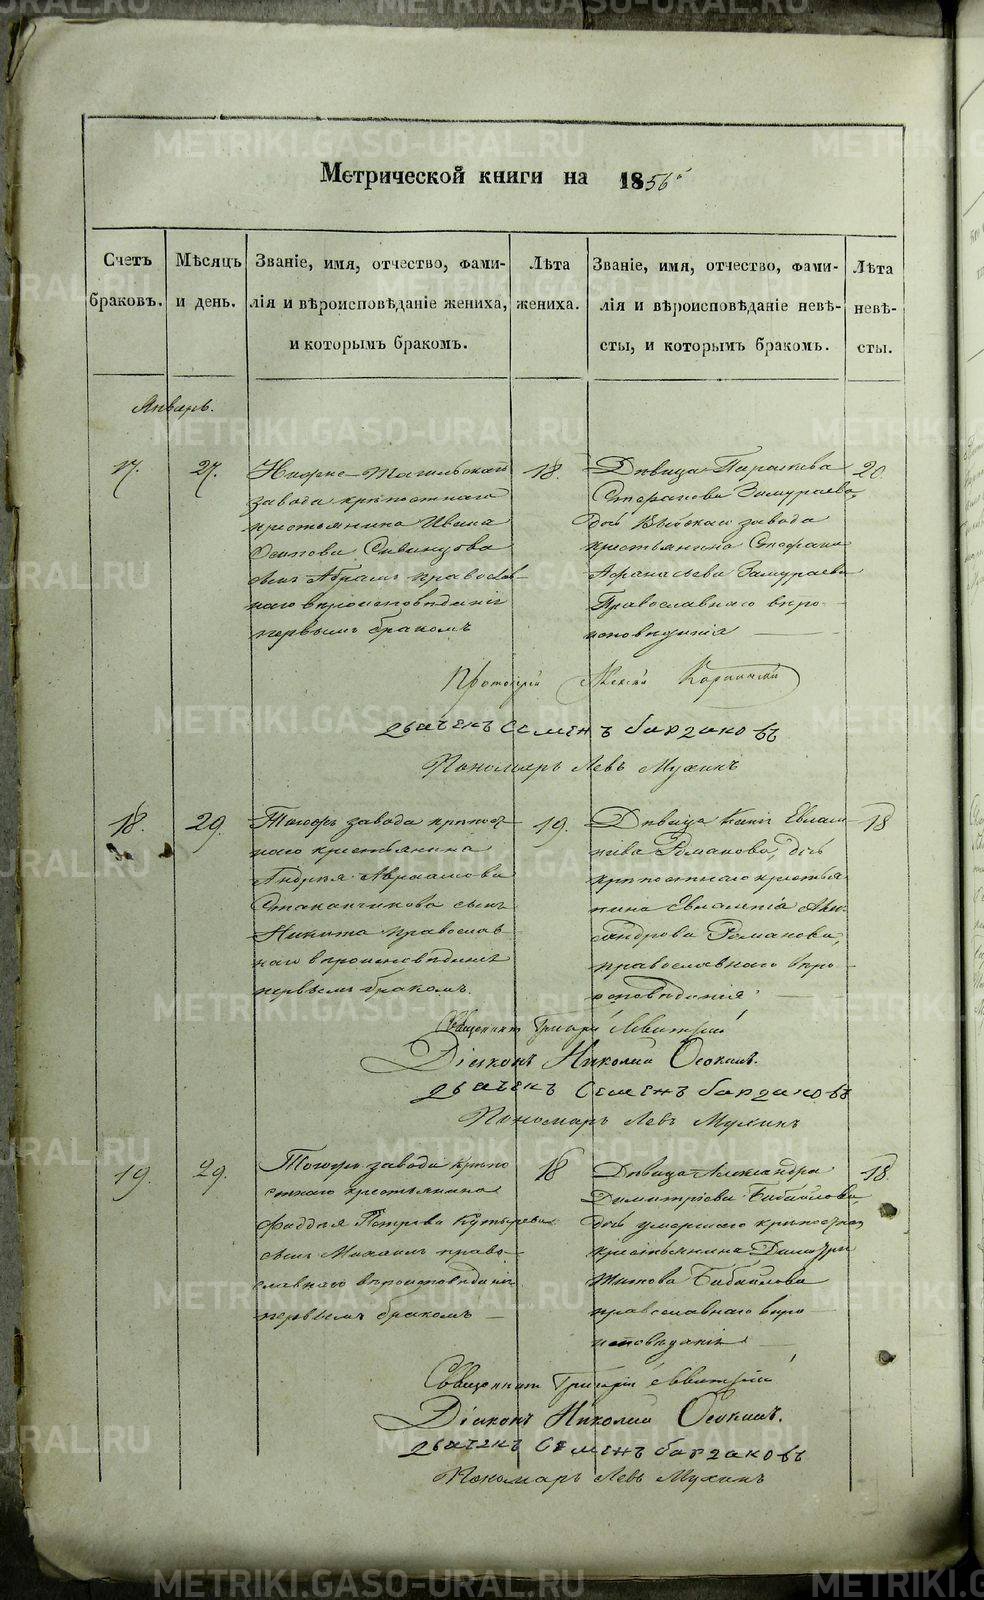 Метрической книги на 1856й
Счетъ браковъ.
Мѣсяцъ и день.
Званіе, имя, отчество, фамилія и вѣроисповѣданіе жениха, и которымъ бракомъ.
Лѣта жениха.
Званіе, имя, отчество, фамилія и вѣроисповѣданіе невѣсты, и которымъ бракомъ.
Лѣта невѣсты.
Январь.
17.
27.
Нижне-Тагильскаго
завода крѣпостнаго
крестьянина Ивана
Осипова
сынъ Абрамъ православ-
наго вѣроисповѣданія
первымъ бракомъ
18.
Дѣвица Параскева
Стефанова Замураева,
дочь Выйскаго завода
крестьянина Стефана
Афанасьева Замураева
Православнаго вѣро-
исповѣданія
20.
Протоіерей Алексій Карпинскій
Дьячекъ Семенъ
Пономарь Левъ Мухинъ
18.
29.
Тогожъ завода крѣпост-
наго крестьянина
Андрея Авраамова
Стаканчикова сынъ
Никита православ-
наго вѣроисповѣданія
первымъ бракомъ.
19.
Дѣвица
Романова, дочь
крѣпостнаго крестья-
нина Евлампія Алек-
сандрова Романова,
православнаго вѣро-
исповѣданія
18
Священникъ Григорій Левитскій
Діаконъ Николай Осокинъ.
Дьячекъ Семенъ
Пономарь Левъ Мухинъ
19.
29.
Тогожъ завода крѣпо-
стнаго крестьянина
Фаддея Петрова
сынъ Михаилъ право-
славнаго вѣроисповѣданія
первымъ бракомъ
18
Дѣвица Александра
Димитріева Бибайлова,
дочь умершаго крѣпостнаго
крестьянина Димитрія
Титова Бибайлова
православнаго вѣро-
исповѣданія
18.
Священникъ Григорій Левитскій
Діаконъ Николай Осокинъ.
Дьячекъ Семенъ
Пономарь Левъ Мухинъ
METRIKI.GASO-URAL.RU